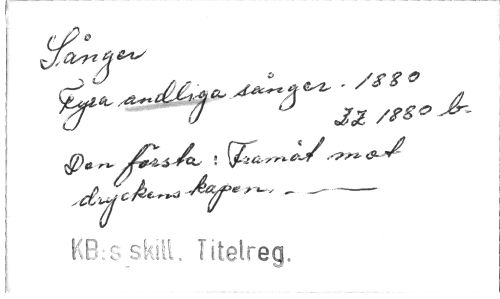 Sånger
Fyra andliga sånger. 1880
ZZ 1880 b.
Den första: Framåt mot
dryckenskapen. — ——
KB:s skill. Titelreg.